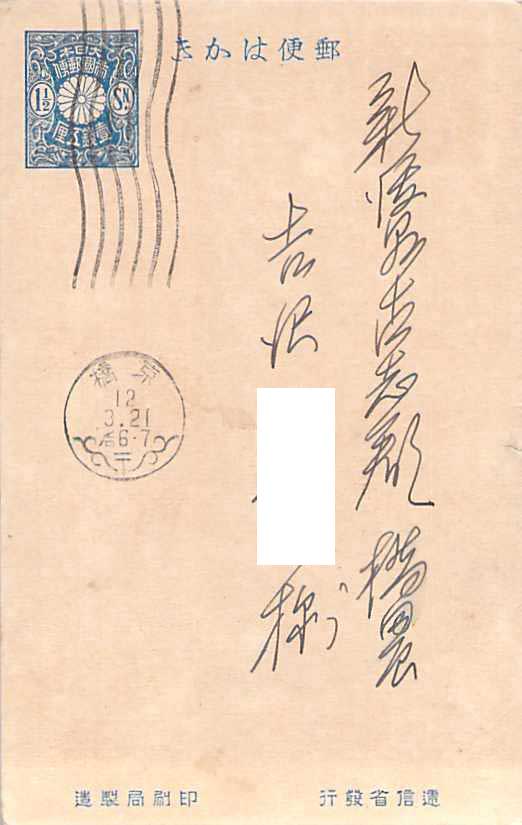 郵便はかき
大日本
帝國郵便
1½ Sn
壹錢五厘
新潟県古志郡
吉沢
様
京橋
12
3.21
6-7
遞信省發行
印刷局製造